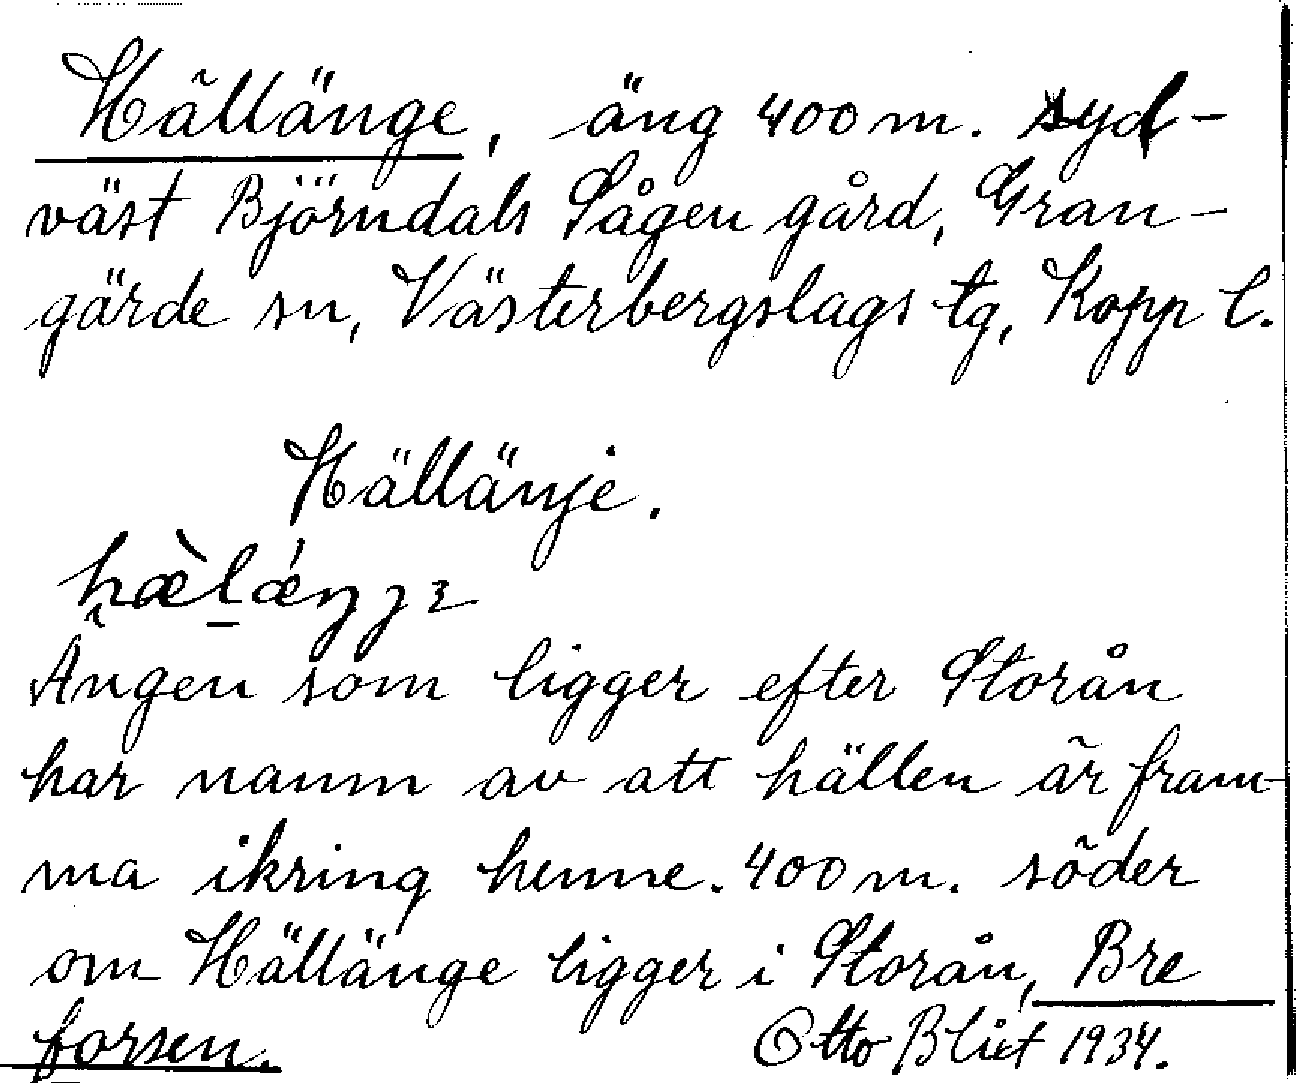 Hällänge, äng 400 m. syd-
väst Björndals Sågen gård, Gran-
gärde sn, Västerbergslags tg, Kopp l.
Hällänje.
hæ̀lǽŋjɛ
Ängen som ligger efter Storån
har namn av att hällen är fram-
ma ikring henne. 400 m. söder
om Hällänge ligger i Storån, Bre
forsen. Otto Blixt 1934.